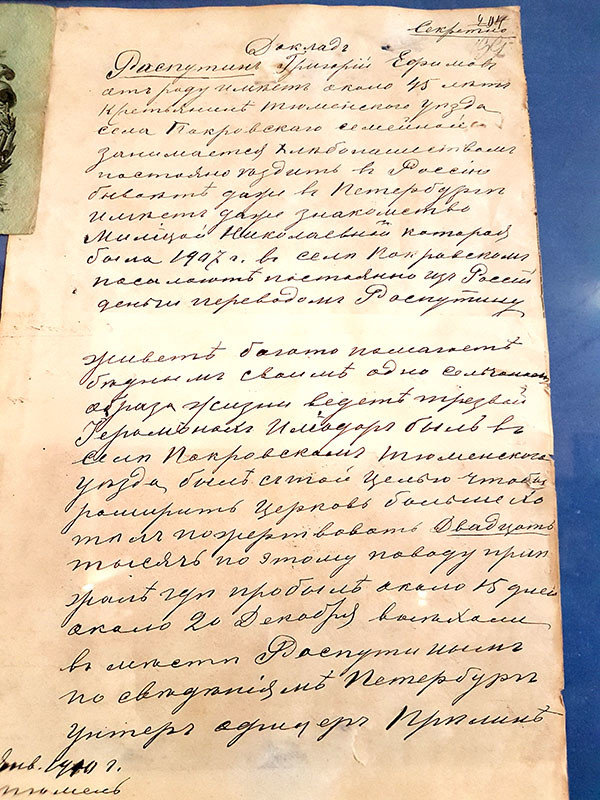 Секретно
Докладъ
Распутинъ Григорій Ефимовъ
отъ роду имѣетъ около 45 лѣтъ
крестьянинъ Тюменского уѣзда
села Покровского семейной
занимается хлѣбопашествомъ
постоянно ѣздитъ в Россію
бываетъ даже в Петербургѣ
имѣетъ даже знакомство
Милицой Николаевной которая
была 1907 г. в селѣ Покровскомъ
посылаютъ постоянно изъ Россіи
деньги переводомъ Распутину
живетъ богато помогаетъ
бѣднымъ своимъ односельчанамъ
образъ жизни ведетъ трезвой
Іеромонахъ Иліодоръ былъ в
селѣ Покровскомъ Тюменского
уѣзда былъ с той целью чтобы
розширить церковь больше хо
тѣлъ пожертвовать Двадцать
тысячъ по этому поводу приѣ
жалъ гдѣ пробылъ около 15 дней
около 20 Декабря выѣхали
в мѣстѣ Распутинымъ
по свѣденіямъ Петербургъ
унтеръ офицеръ Прилинъ
Янв. 1910 г.
Тюмень